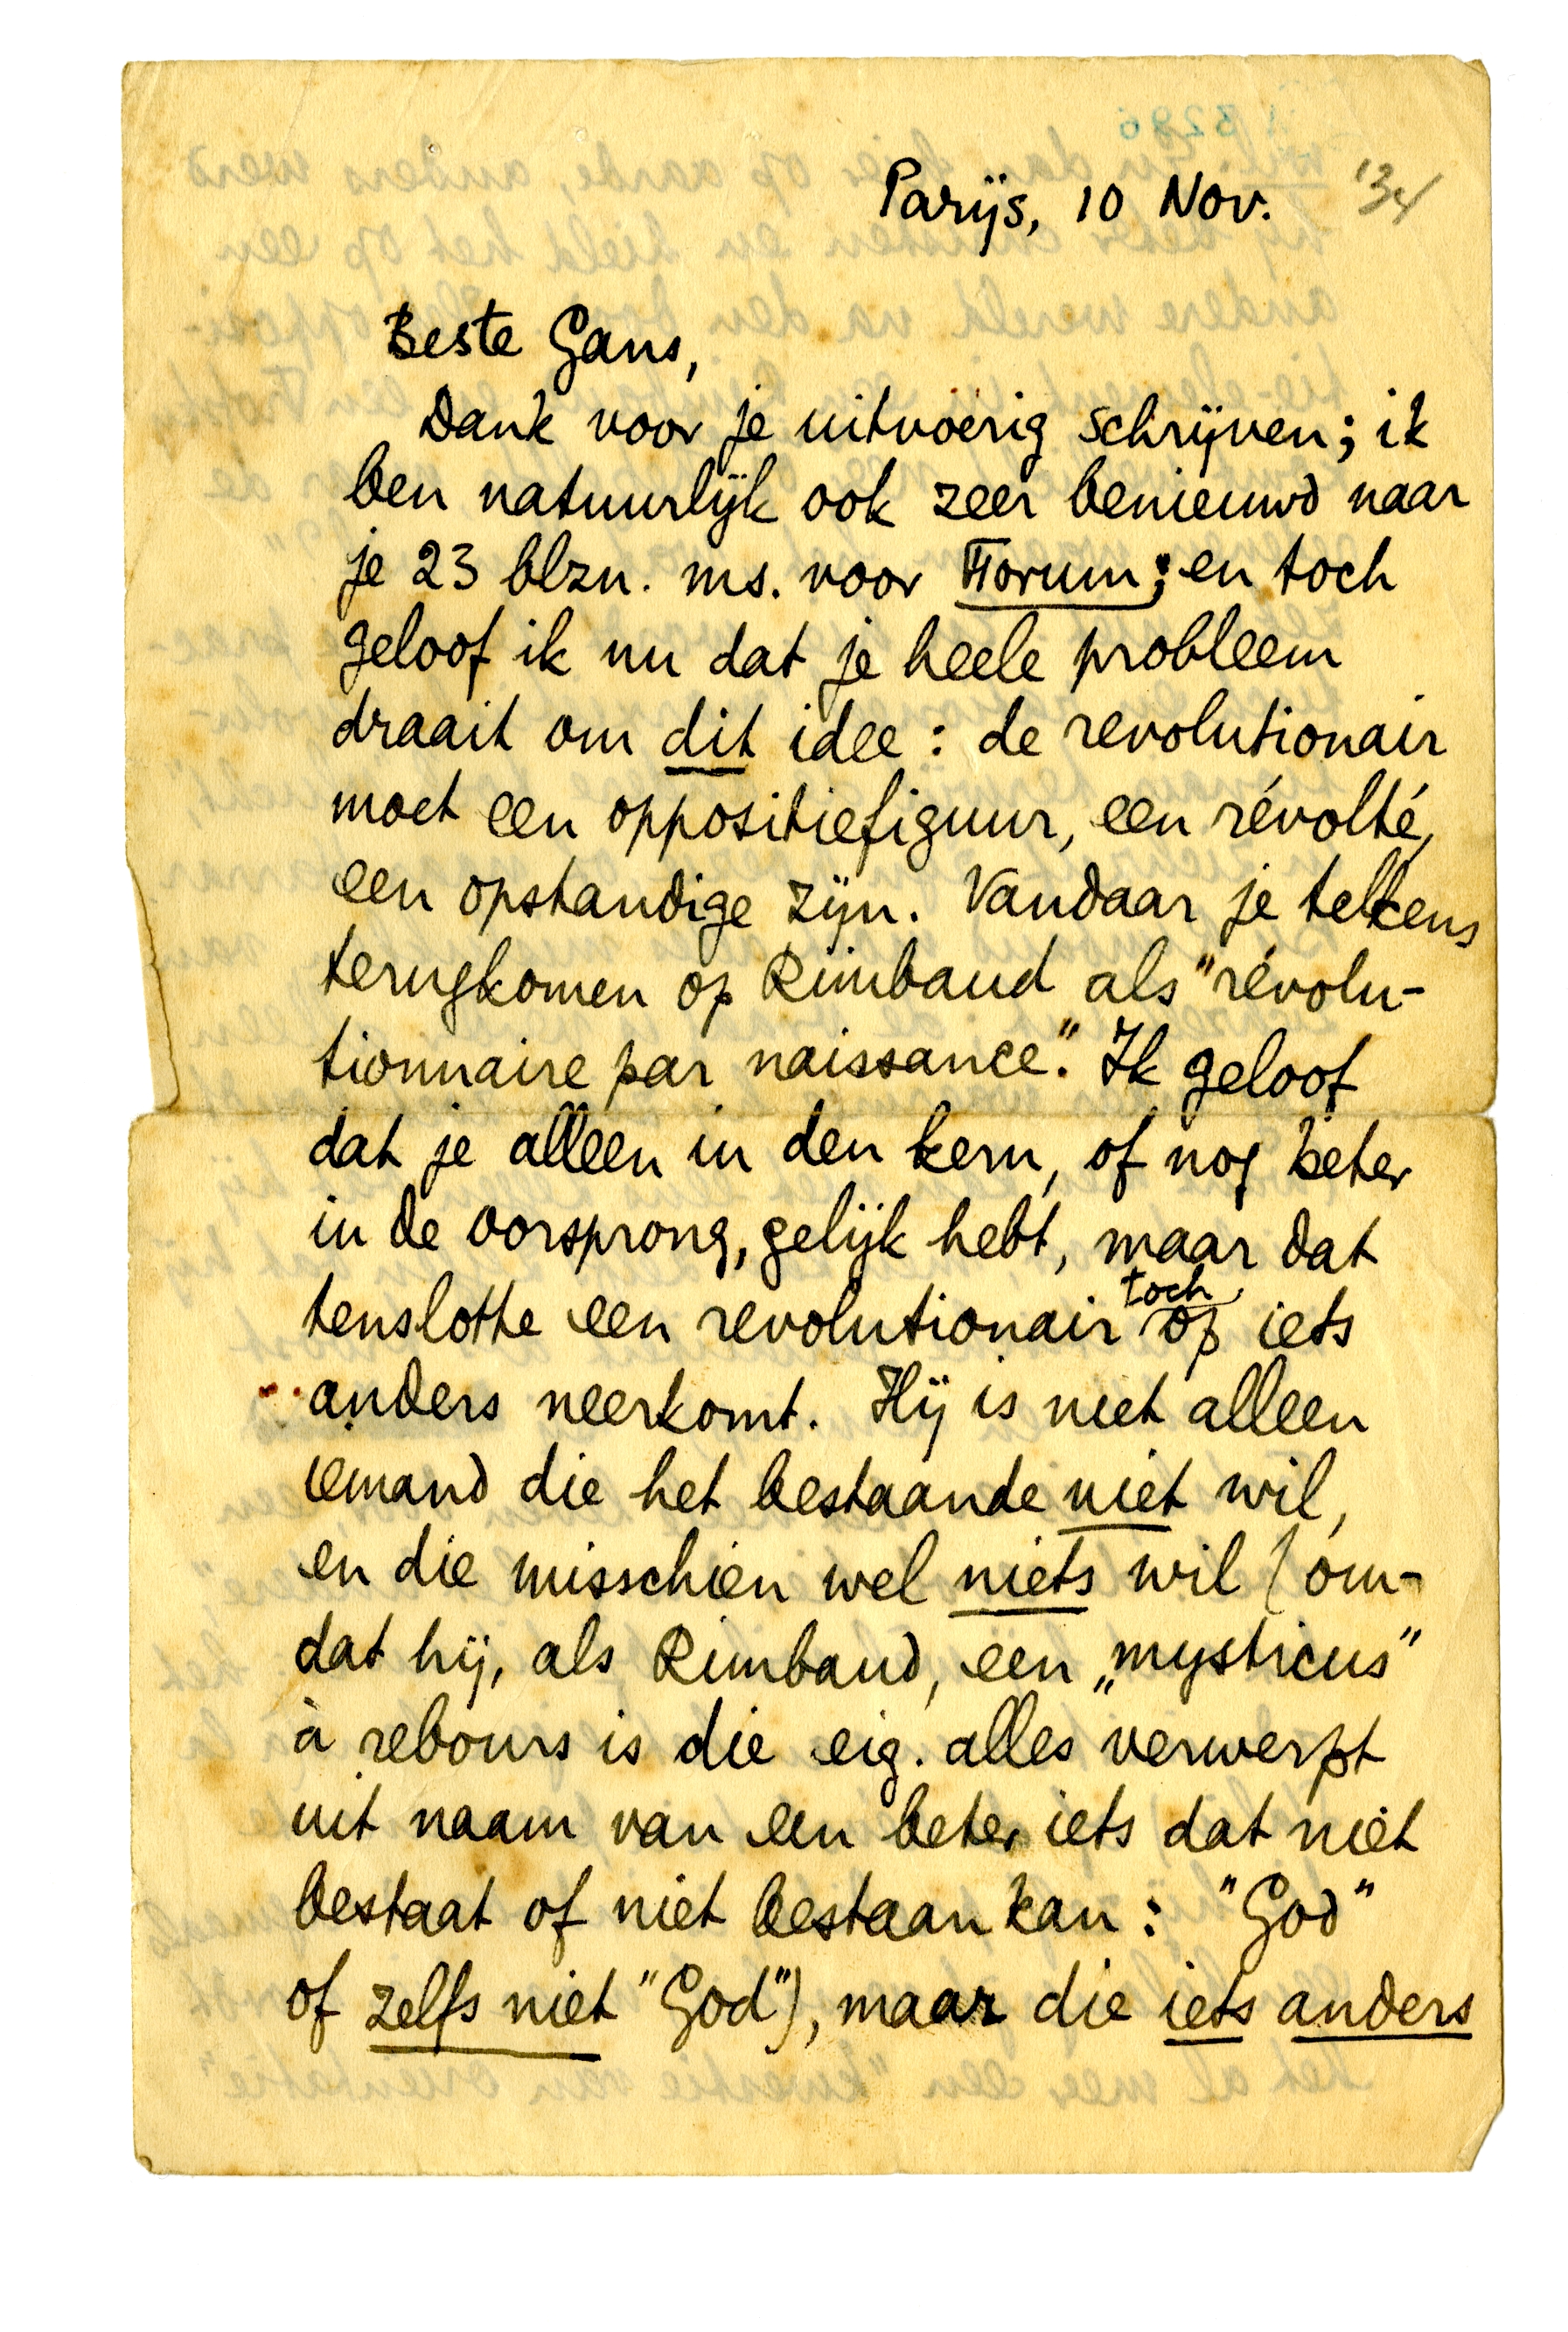 Parijs, 10 Nov. '34
Beste Gans,
Dank voor je uitvoerig schrijven; ik
ben natuurlijk ook zeer benieuwd naar
je 23 blzn. ms. voor Forum; en toch
geloof ik nu dat je heele probleem
draait om dit idee: de revolutionair
moet een oppositiefiguur, een révolté,
een opstandige zijn. Vandaar je telkens
terugkomen op Rimbaud als "révolu-
tionnaire par naissance". Ik geloof
dat je alleen in den kern, of nog beter
in de oorsprong, gelijk hebt, maar dat
tenslotte een revolutionair toch op iets
anders neerkomt. Hij is niet alleen
iemand die het bestaande niet wil,
en die misschien wel niets wil (om-
dat hij, als Rimbaud, een „mysticus"
à rebours is die eig. alles verwerpt
uit naam van een beter iets dat niet
bestaat of niet bestaan kan: "God"
of zelfs niet "God"), maar die iets anders